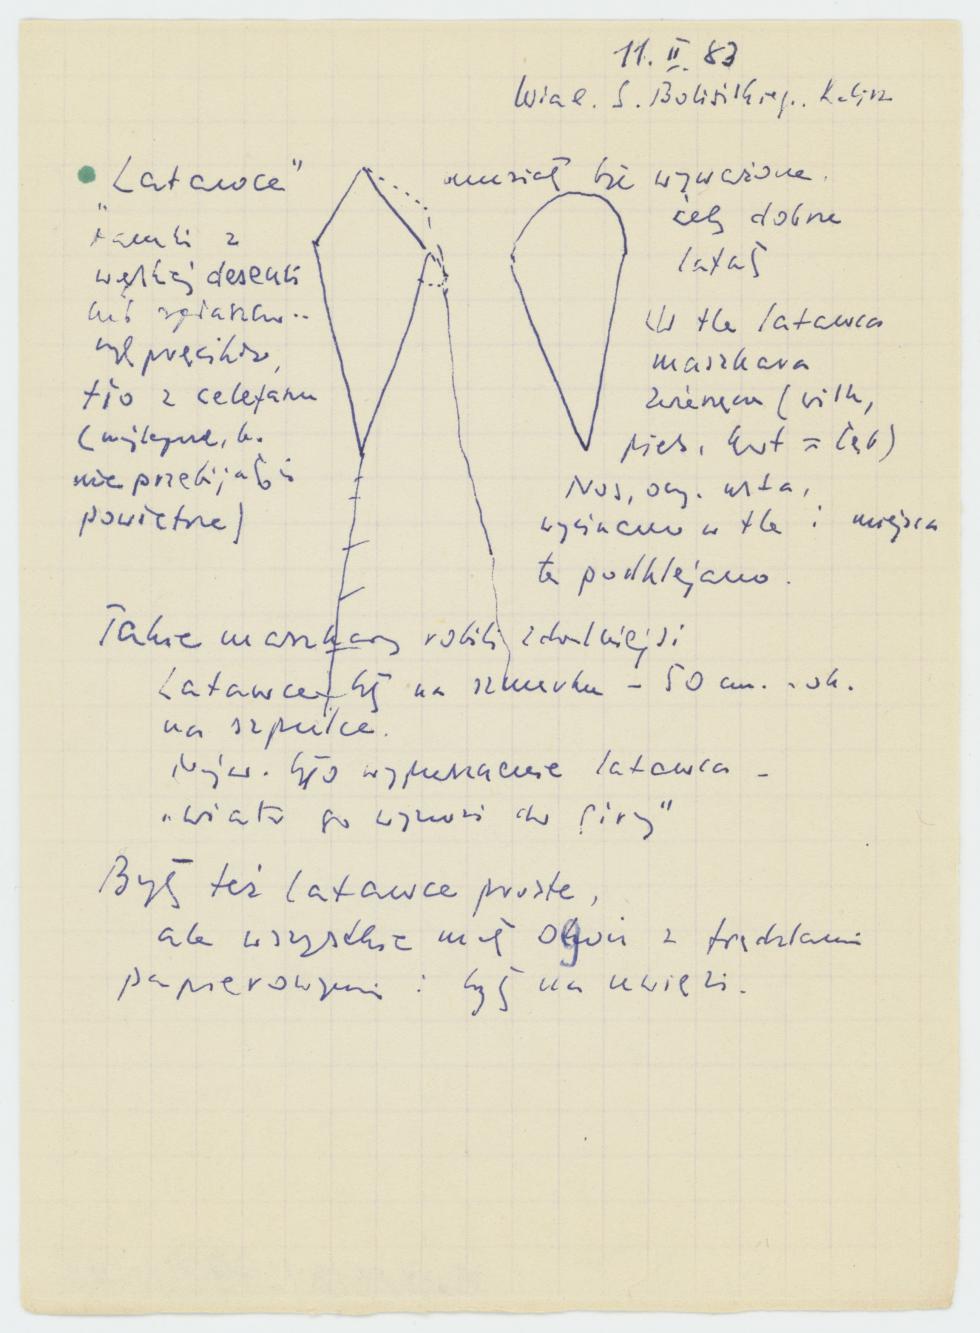 11. II. 83
Wiad. S. Kalisz
"Latawce"
musiały być wyważone.
"ramki z
żeby dobrze
wąskiej deseczki
latały
lub
W tle latawca
pręcików,
maszkara
tło z celofanu
zwierzęca (wilk,
(najlepsze, b.
pies, kot = łeb)
nie przebijało i
Nos, oczy, usta,
powietrze)
wycinano w tle i miejsca
te podklejano.
Takie maszkary robili zdolniejsi
Latawce były na sznurku – 50 cm. ok.
na szpulce.
Najw. było wypuszczenie latawca –
"wiatr go wynosi do góry"
Były też latawce proste,
ale wszystkie miały ogon z frędzlami
papierowymi i były na uwięzi.